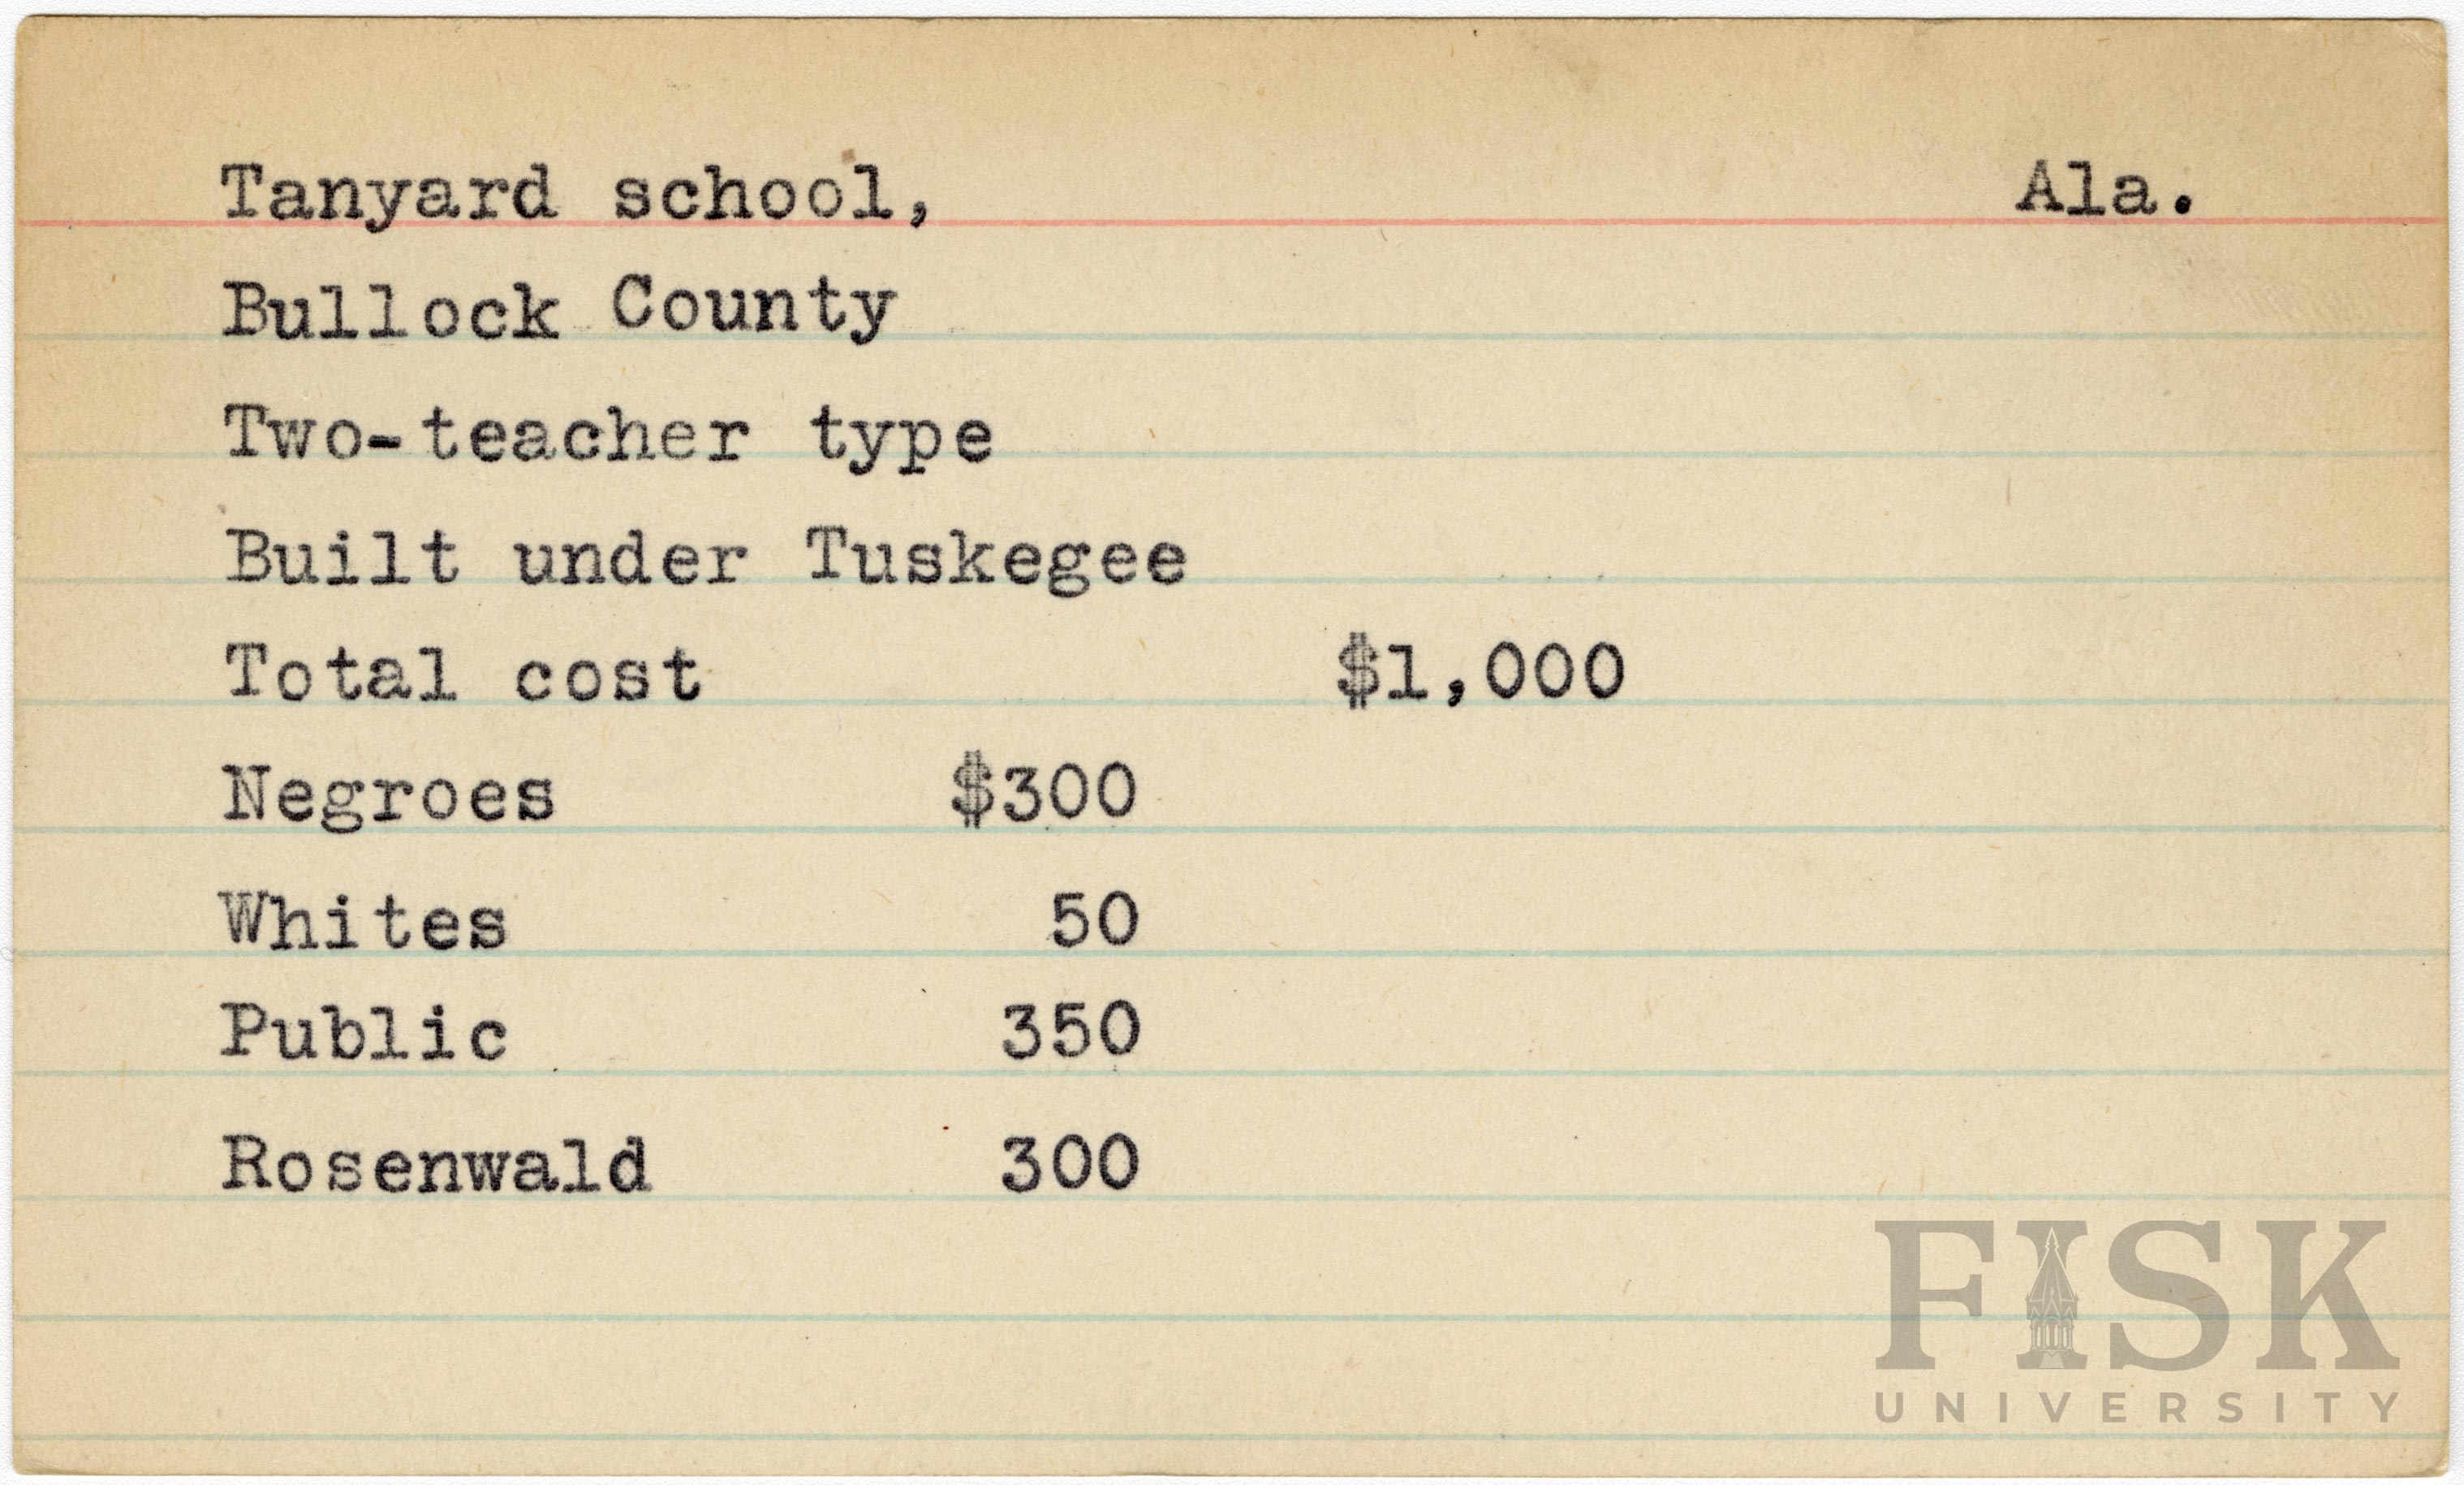 Tanyard school, Ala.
Bullock County
Two-teacher type
Built under Tuskegee
Total cost $1,000
Negroes $300
Whites 50
Public 350
Rosenwald 300
FISK
UNIVERSITY